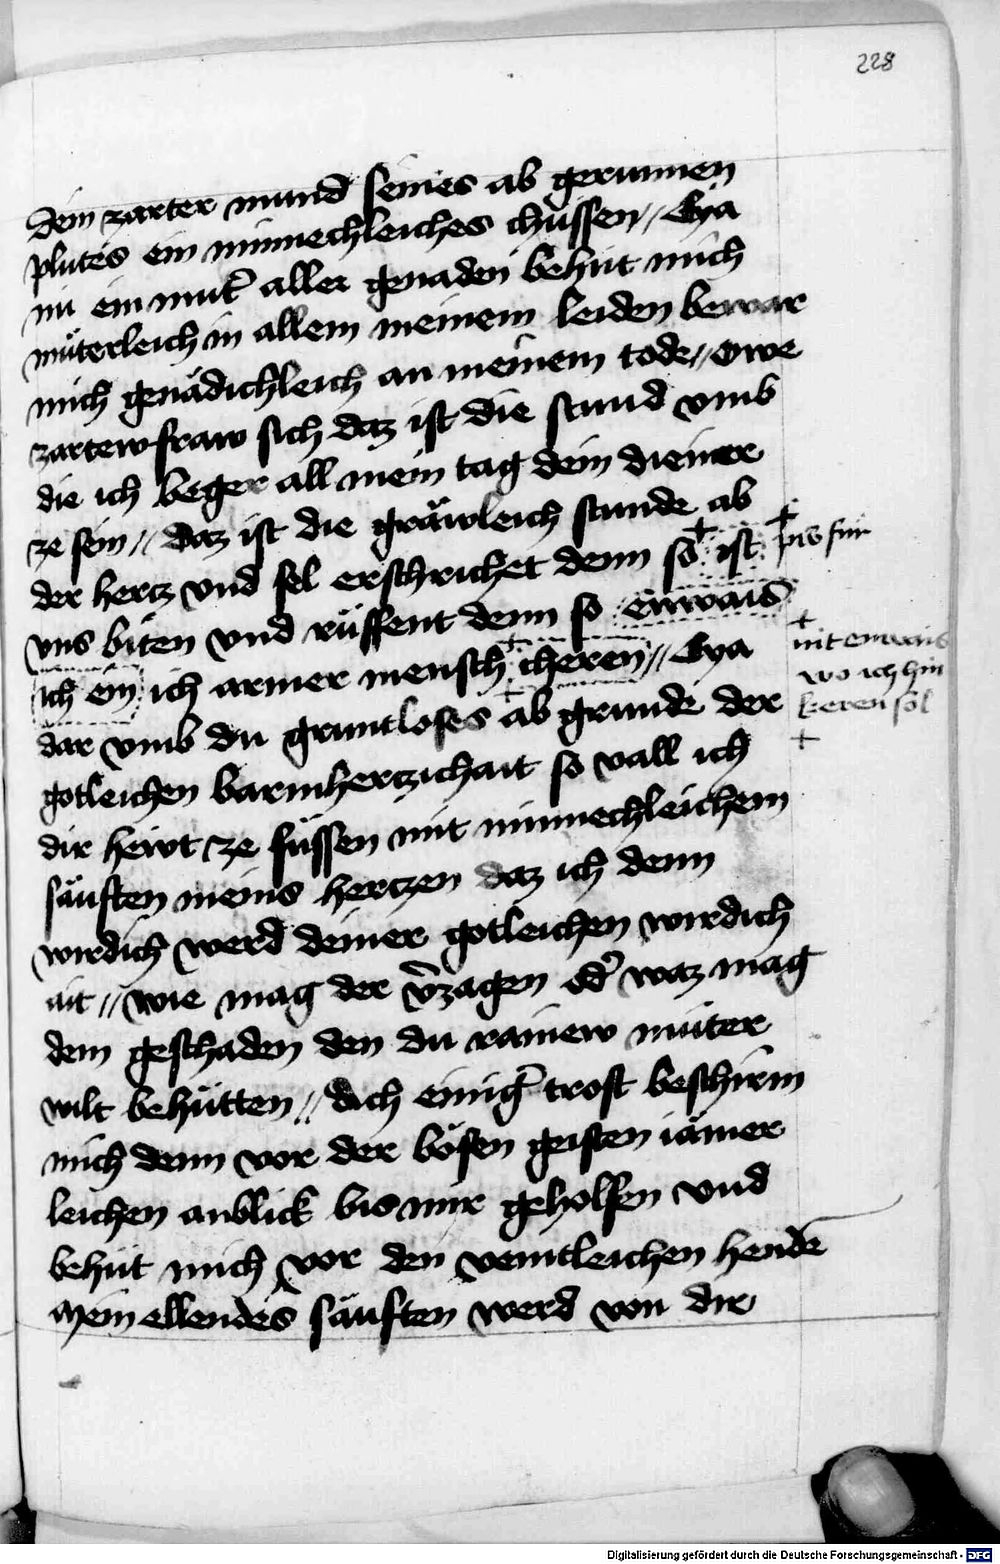 228
dein zarter mund seines ab gerunnen
plutes ein minnechleiches chüssen // Eya
nu ein mut͛ aller genaden behüt mich
müterleich in allem meinem leiden bewar
mich genädichleich an meinem tode // Owe
zartew fraw sich daz ist die stund vmb
die ich beger all mein tag dein diener
ze sein // daz ist die gräwleich stunde ab
der hertz vnd sel erschrichet denn so + ist + pis für
vns biten vnd rüffent denn so enwais
ich ein ich armer mensch + cheren // Eya
+ nit enwais
wo ich hin
keren sol
+
dar vmb du gruntloses ab grunde der
gotleichen barmhertzichait so vall ich
dir hewt ze füssen mit minnechleichem
säuften meins hertzen daz ich denn
wirdich werd deiner gotleichen wirdich
ait // wie mag der v͛zagen od͛ waz mag
dem geschaden den du rainew muter
wilt behütten // dich einig͛ trost beschirm
mich denn vor der bösen geisten iämer
leichen anblick bis mir geholfen vnd
behüt mich vor den veintleichen hende
Mein ellendes säuften werd von dir
Digitalisierung gefördert durch die Deutsche Forschungsgemeinschaft - DFG